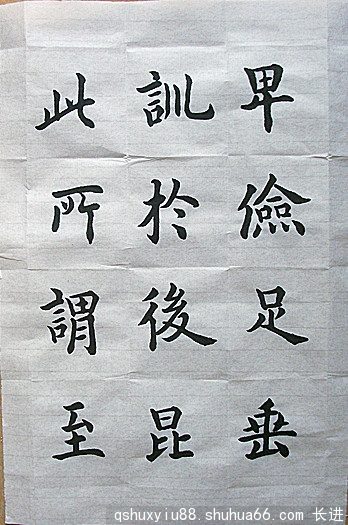 卑儉足垂
訓於後昆
此所謂至
qshuxyiu88.shuhua66.com 长进